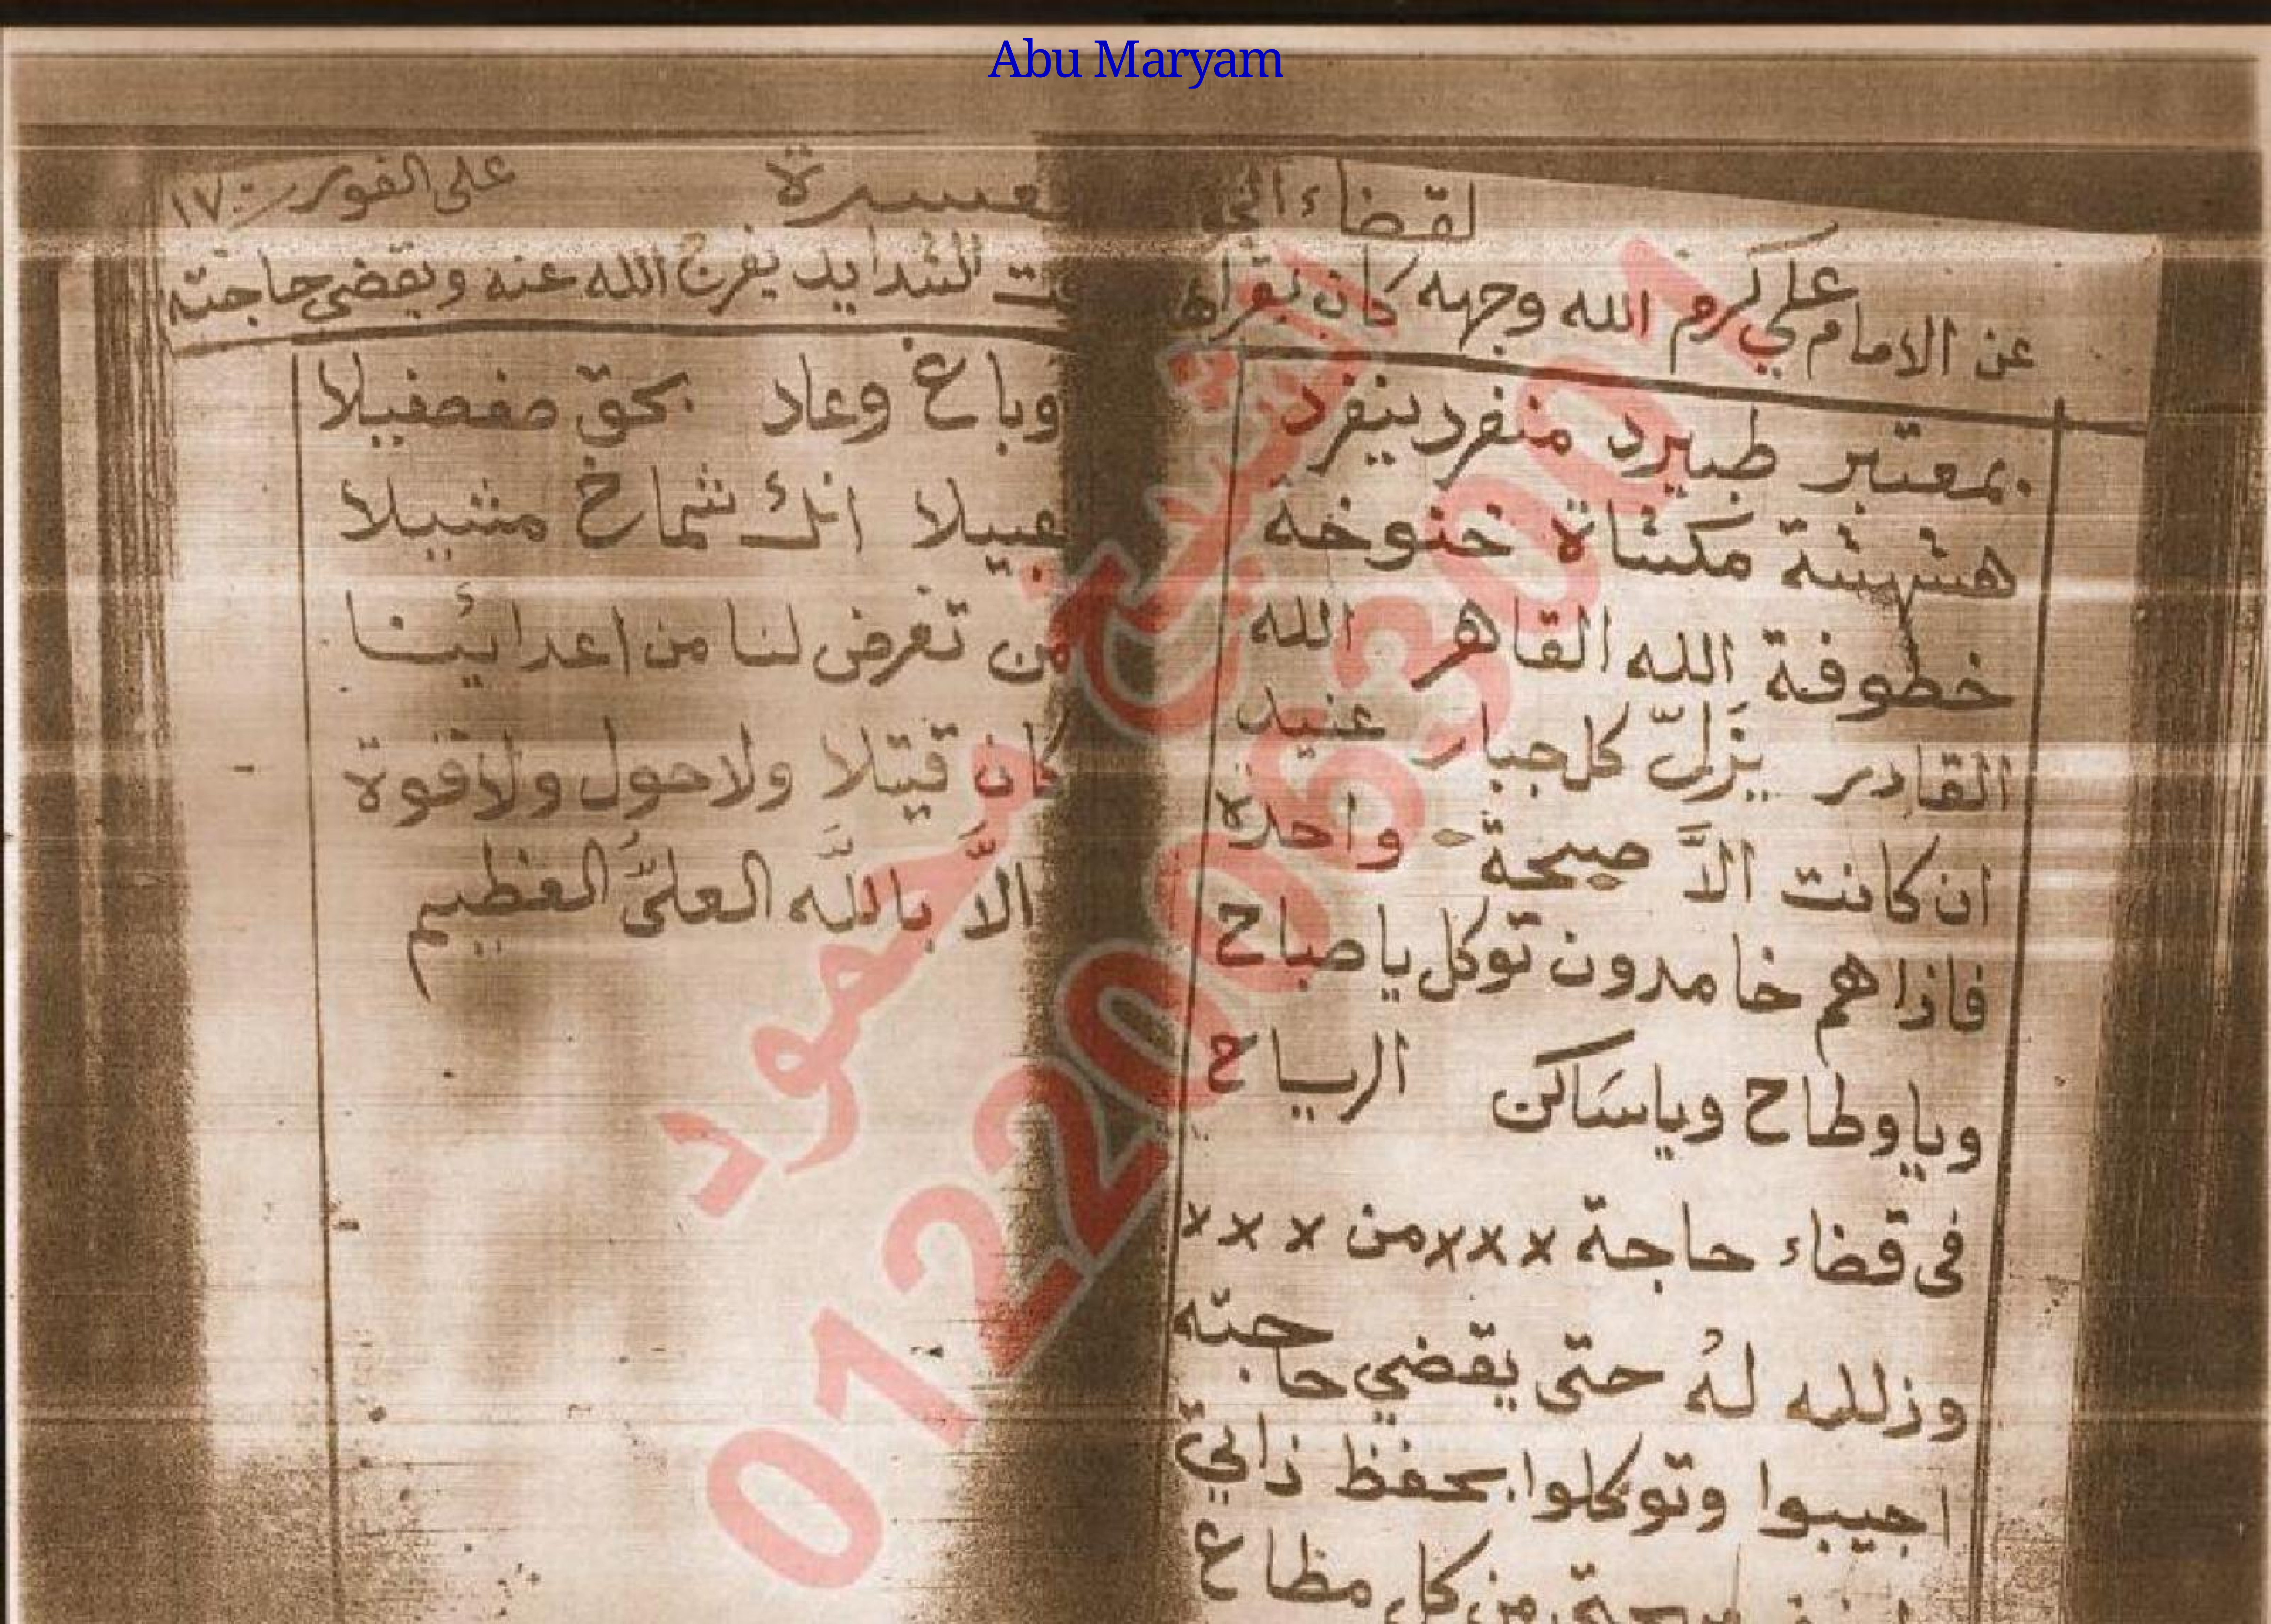 Abu Maryam
لقضاء الحو
عسرة
على الفور
١٧٠
عن الامام علي كرم الله وجهه كان يقراها
ت الشدايد يفرج الله عنه ويقضي حاجته
بمعتبر طبيرد منفرد ينفرد
هشهشة مكشاة خنوخة
خطوفة الله القاهر الله
القادر يزلّ كل جبار عنيد
ان كانت الاَّ صيحة واحدة
فاذا هم خامدون توكل يا صباح
ويا وطاح ويا سَاكن الرياح
فى قضاء حاجة xxx من xxx
وذلله لهُ حتى يقضي حاجته
اجيبوا وتوكلوا بحفظ ذاتي
من كل مطاع
وباغ وعاد بحق صفصفيلا
عييلا انك شماخ مشيلا
من تعرض لنا من اعدائينا
كان قتيلا ولا حول ولا قوة
الاَّ باللَّه العلىّ العظيم
الشيخ محمود
01220063001